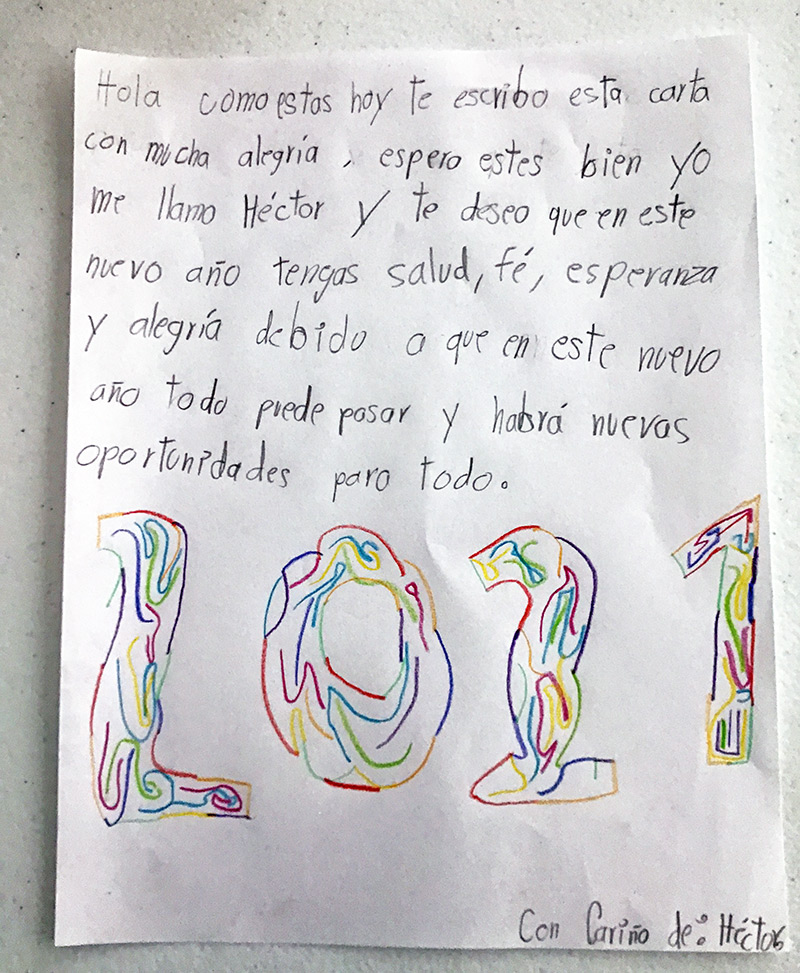 Hola como estas hoy te escribo esta carta
con mucha alegría, espero estes bien yo
me llamo Héctor y te deseo que en este
nuevo año tengas salud, fé, esperanza
y alegría debido a que en este nuevo
año todo puede pasar y habrá nuevas
oportunidades para todo.
2021
Con Cariño de: Héctor